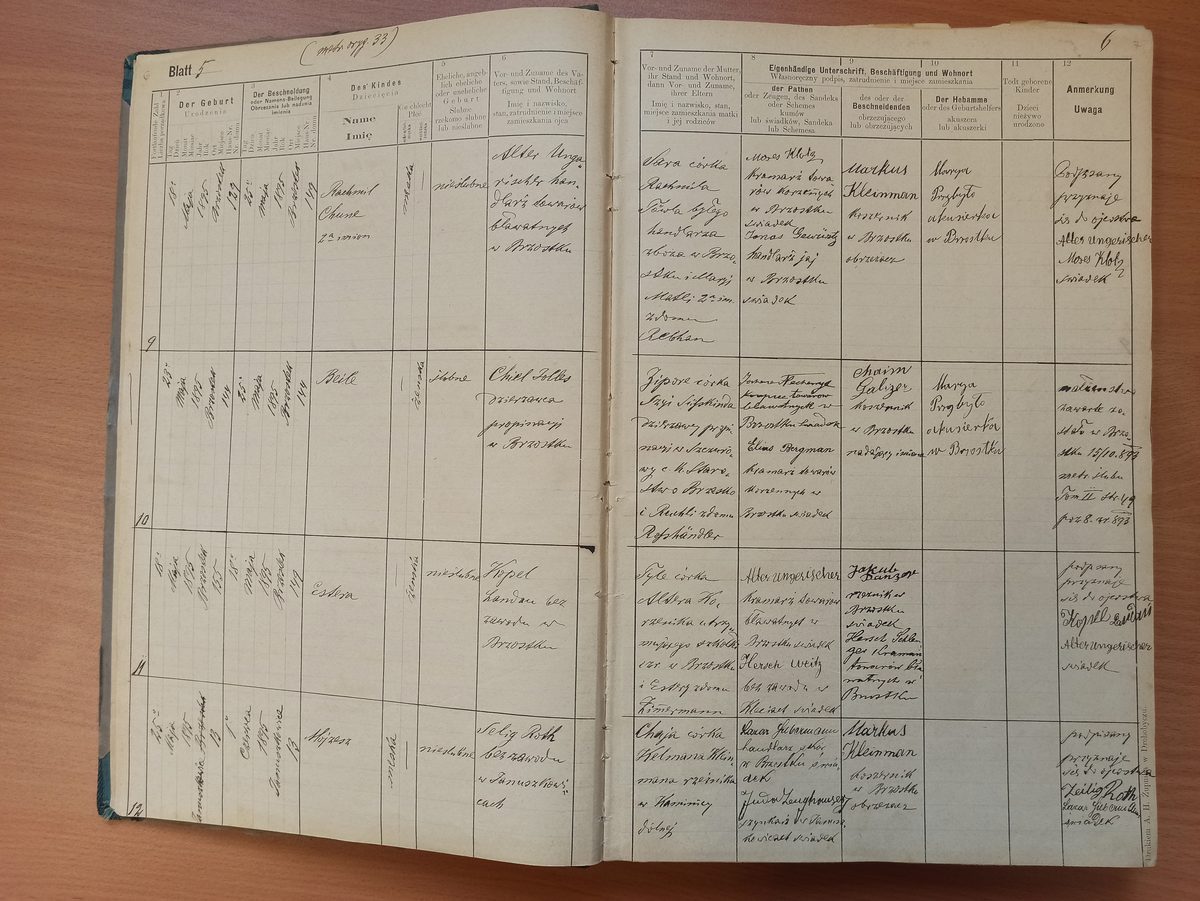 (metr. oryg. 33)
Blatt 5
6
1
2
3
4
5
6
7
8
9
10
11
12
Fortlaufende Zahl
Liczba porządkowa
Der Geburt
Urodzenia
Tag
Dzień
Monat
Miesiąc
Jahr
Rok
Ort
Miejsce
Haus-Nr.
Nr. domu
Der Beschneidung
oder Namens-Beilegung
Obrzezania lub nadania
imienia
Des Kindes
Dziecięcia
Name
Imię
Geschlecht
Płeć
Eheliche, angeb-
lich eheliche
oder uneheliche
Geburt
Ślubne
rzekomo ślubne
lub nieślubne
Vor- und Zuname des Va-
ters, sowie Stand, Beschäf-
tigung und Wohnort
Imię i nazwisko,
stan, zatrudnienie i miejsce
zamieszkania ojca
Vor- und Zuname der Mutter,
ihr Stand und Wohnort,
dann Vor und Zuname,
ihrer Eltern
Imię i nazwisko, stan,
miejsce zamieszkania matki
i jej rodziców
Eigenhändige Unterschrift, Beschäftigung und Wohnort
Własnoręczny podpis, zatrudnienie i miejsce zamieszkania
der Pathen
oder Zeugen, des Sandeks
oder Schemes
kumów
lub świadków, Sandeka
lub Schemesa
des oder der
Beschneidenden
obrzezującego
lub obrzezujących
Der Hebamme
oder des Geburtshelfers
akuszera
lub akuszerki
Todt geborene
Kinder
Dzieci
nieżywo urodzone
Anmerkung
Uwaga
9
18
Maja
1895
Brzostek
129
25
maja
1895
Brzostek
Rachmil
Chune
2a imion
męska
nieślubne
Alter Unga-
rischer han-
dlarz towarów
bławatnych
w Brzostku
Sara córka
Rachmila
byłego
handlarza
zboża w Brzo-
stku i Maryi
Matli 2a im.
z domu
Rebhan
Moses Klotz
kramarz towa-
rów korzennych
w Brzostku
świadek
Jonas Gewürtz
handlarz jaj
w Brzostku
świadek
Markus
Kleinman
koszernik
w Brzostku
obrzezacz
Marya
Przybyło
akuszerka
w Brzostku
Podpisany
przyznaje
się do ojcostwa
Alter Ungerischer
Moses Klotz
świadek
10
25
Maja
1895
Brzostek
144
25
Maja
1895
Brzostek
144
Beile
żeńska
ślubne
Chiel Tolles
dzierżawca
propinacji
w Brzostku
Zipore córka
Süskinda
dzierżawcy propi-
nacji w Szczuro-
wy c. k. Staro-
stwo Brzesko
i Ruchli z domu
Rosshändler
towarów
bławatnych w
Brzostku świadek
Elias Bergman
kramarz towarów
korzennych w
Brzostku świadek
Chaim
Galizer
koszernik
w Brzostku
nadający imiona
Marya
Przybyło
akuszerka
w Brzostku
małżeństwo
zawarte zo-
stało w Brzo-
stku 15/10. 893
metr. ślubu
Tom II str. 49
poz 8. ex 893
11
18
Maja
1895
Brzostek
155
18
maja
1895
Brzostek
149
Estera
żeńska
nieślubne
Kopel
Landau bez
zawodu w
Brzostku
Tyle córka
Altera Ko-
rzenika utrzy-
mującego szkółkę
w Brzostku
i Estry z domu
Zimermann
Alter Ungerischer
kramarz towarów
bławatnych w
Brzostku świadek
Hersch Weitz
bez zawodu w
świadek
Jakub
Danzer
rzeznik w
Brzostku
świadek
Hersch
kramarz
towarów bła-
watnych w
Brzostku
podpisany
przyznaje
się do ojcostwa
Kopel Landau
Alter Ungerischer
świadek
12
25
Maja
1895
Januszkowice
13
1
Czerwca
1895
Januszkowice
13
Mojzesz
męska
nieślubne
Selig Roth
bez zawodu
w Januszkowi-
cach
Chaja córka
Kelmana Klein-
mana rzeźnika
w Kamienicy
dolnej
Lazar Gubermann
handlarz skór
w Brzostku świa-
dek
szynkarz w Janusz-
kowicach świadek
Markus
Kleinman
koszernik
w Brzostku
obrzezacz
podpisany
przyznaje
się do ojcostwa
Zeilig Roth
Lazar Guberman
świadek
Drukiem A. H. Żupnika w Drohobyczu.